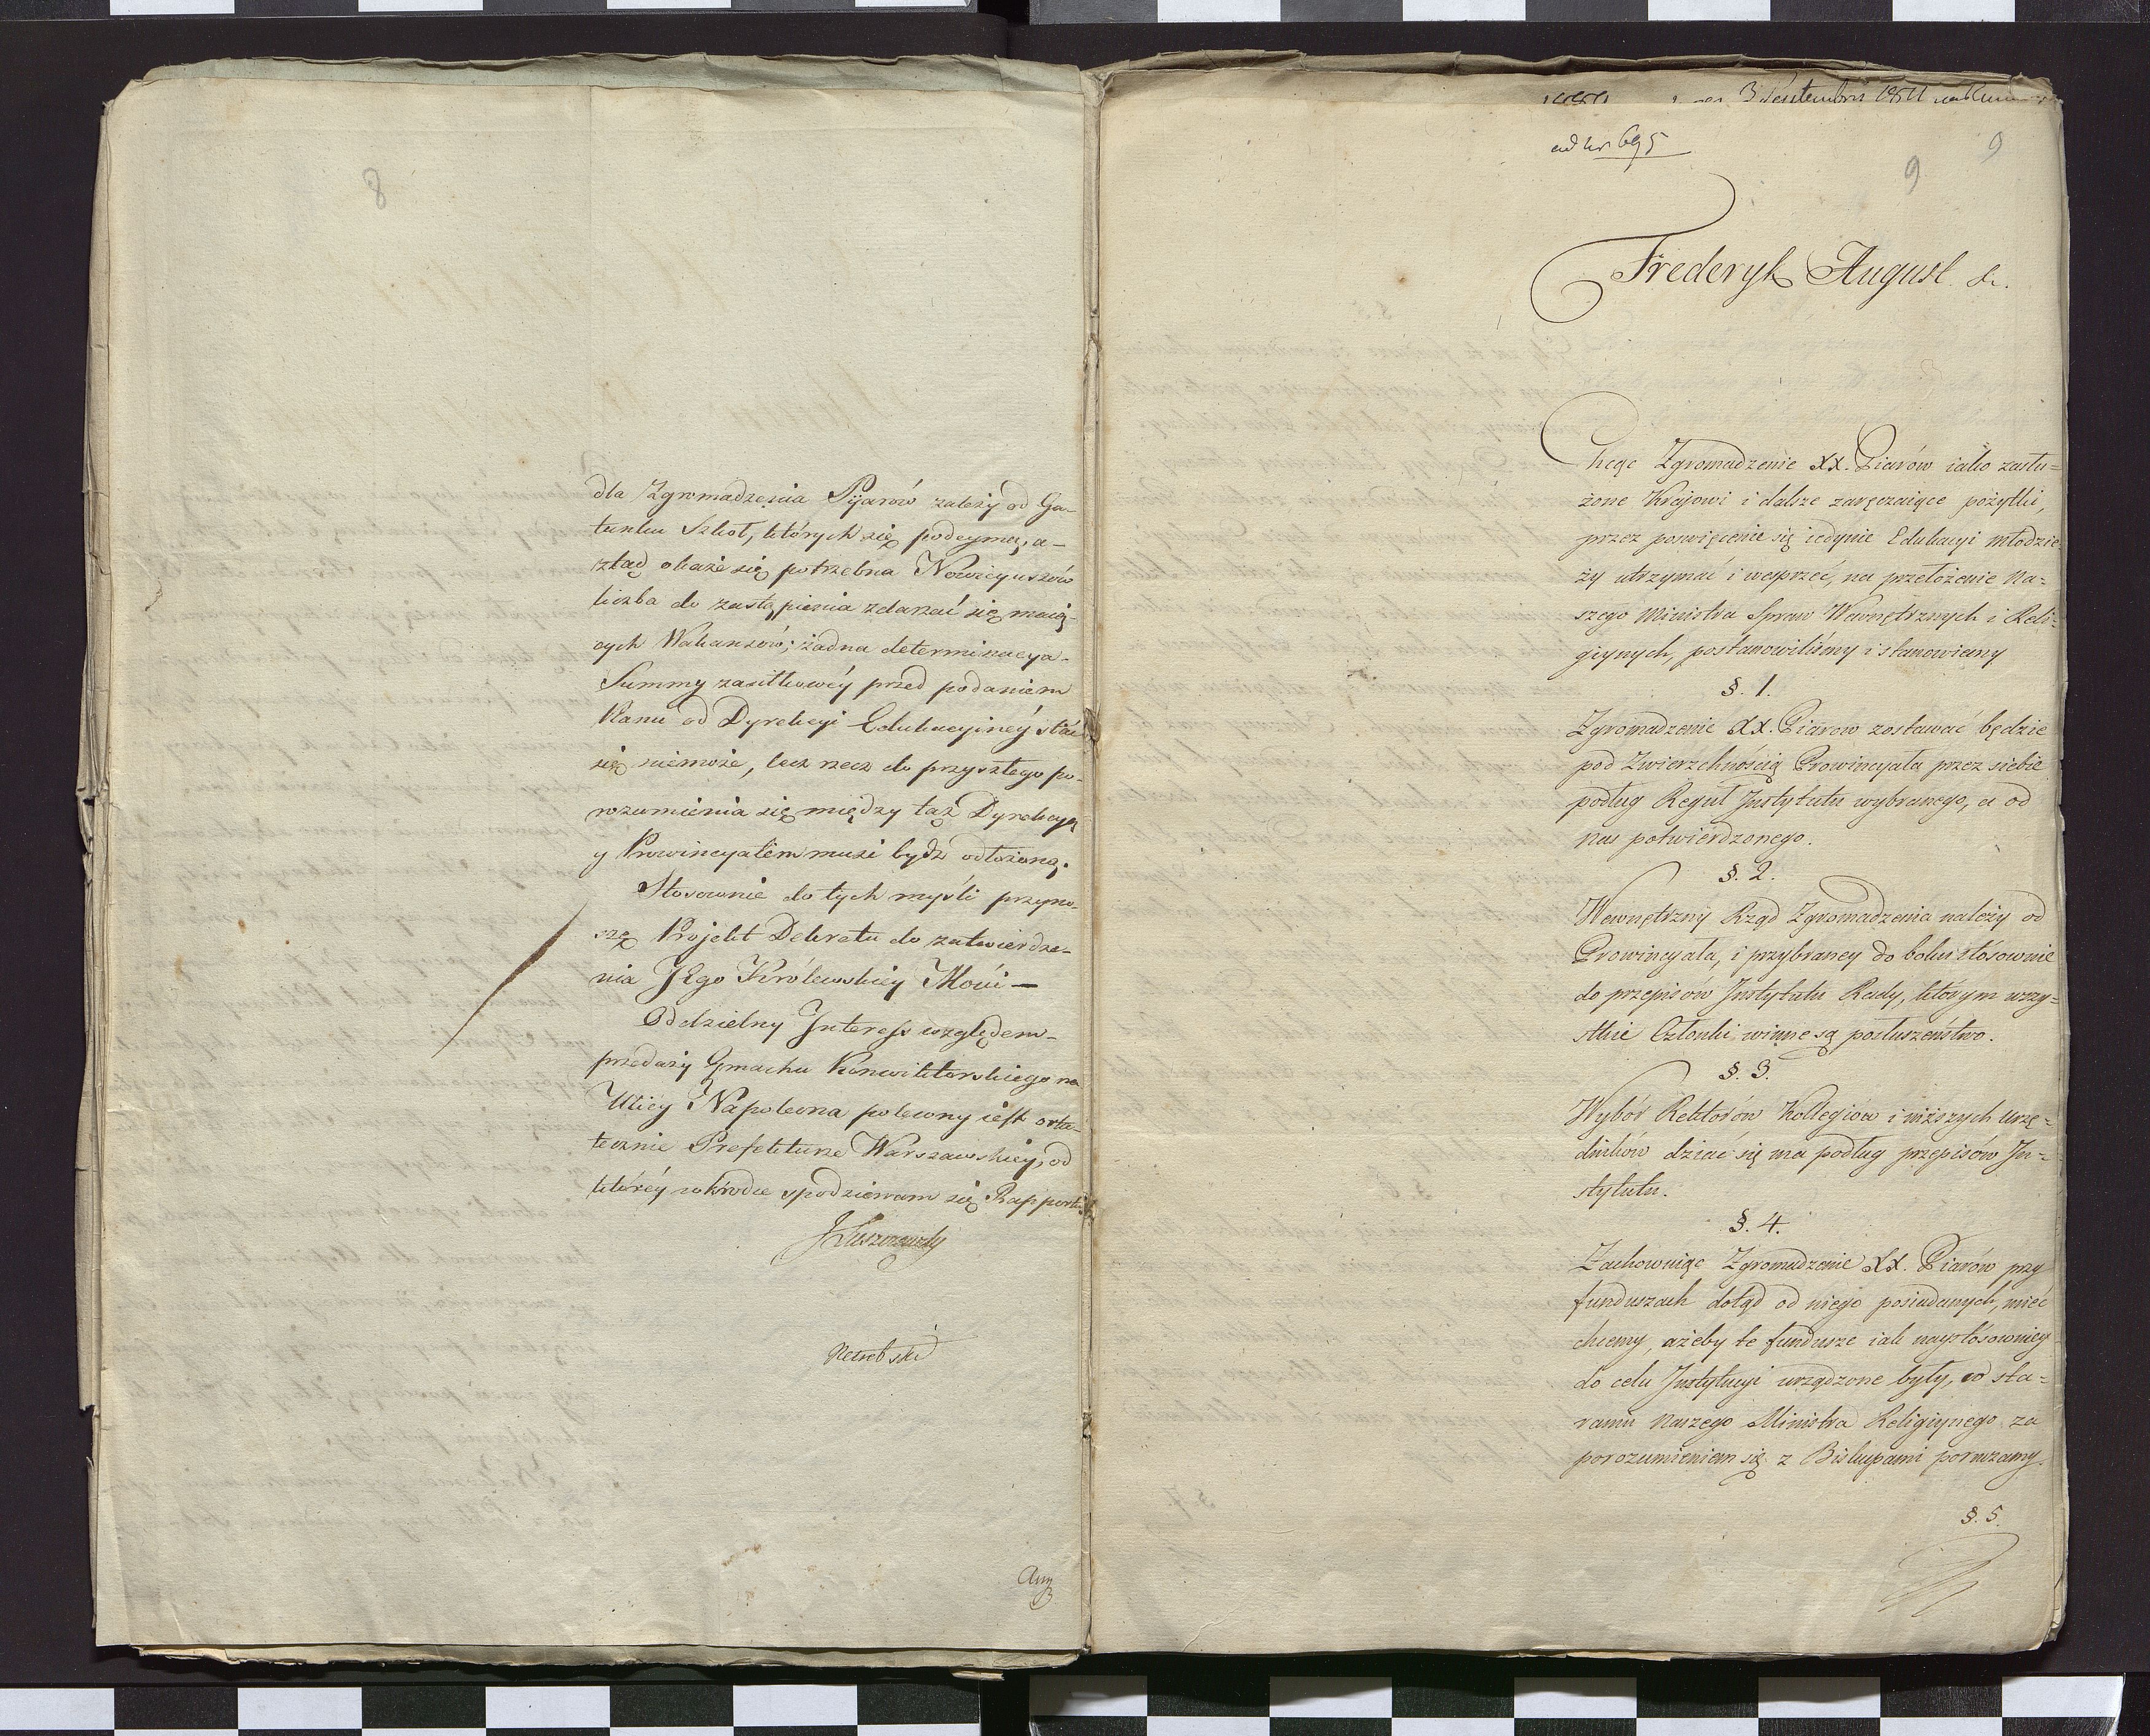 8
dla Zgromadzenia Pijarow zależy od Ga-
tunku Szkoł, których się podeymą, a-
ztąd okaże się potrzebna Nowicyuszów
liczba do zastąpienia zdarzać się maią-
cych Wakansów; żadna determinacya-
Summy zasiłkowéy przed podaniem
Planu od Dyrekcyi Edukacyinéy stać
się niemoże, lecz rzecz do przyszłego po-
rozumienia się między tąż Dyrekcyą
y Prowincyałem musi bydź odłożoną.
Stosownie do tych myśli przyno-
szę Projekt Dekretu do zatwierdze-
nia JEgo Królewskiey Mości —
Oddzielny Interess względem-
przedaży Gmachu Konwiktorskiego na
Ulicy Napoleona polecony iest osta-
tecznie Prefekturze Warszawskiey, od
któréy wkrodce spodziewam się Rapportu
JŁuszczewski
Ann
3 Septembris 1811
ad Nr 695
9
9
Frederyk August &c.
Chcąc Zgromadzenie XX. Piarów iako zasłu=
żone Krajowi i dalsze zaręczaiące pożytki,
przez poswięcenie się iedynie Edukacyi młodzie=
ży utrzymać i wesprzeć, na przełożenie Na=
szego Ministra Spraw Wewnętrznych i Reli=
giynych, postanowiliśmy i stanowiemy
§. 1.
Zgromadzenie XX. Piarow zostawać będzie
pod Zwierzchnością Prowincyała przez siebie
podług Reguł Instytutu wybranego, a od
nas potwierdzonego.
§. 2.
Wewnętrzny Rząd Zgromadzenia należy od
Prowincyała, i przybraney do boku stósownie
do przepisów Instytutu Rady, którym wszy=
stkie Członki winne są posłuszeństwo.
§. 3.
Wybór Rektorów Kollegiów i niższych urzę=
dników dziać się ma podług przepisów In=
stytutu.
§. 4.
Zachowuiąc Zgromadzenie XX. Piarów przy
funduszach dotąd od niego posiadanych, mieć
chcemy, ażeby te fundusze iak naystósowniey
do celu Instytucyi urządzone były, co sta=
raniu Naszego Ministra Religiynego za
porozumieniem się z Biskupami poruczamy.
§. 5.